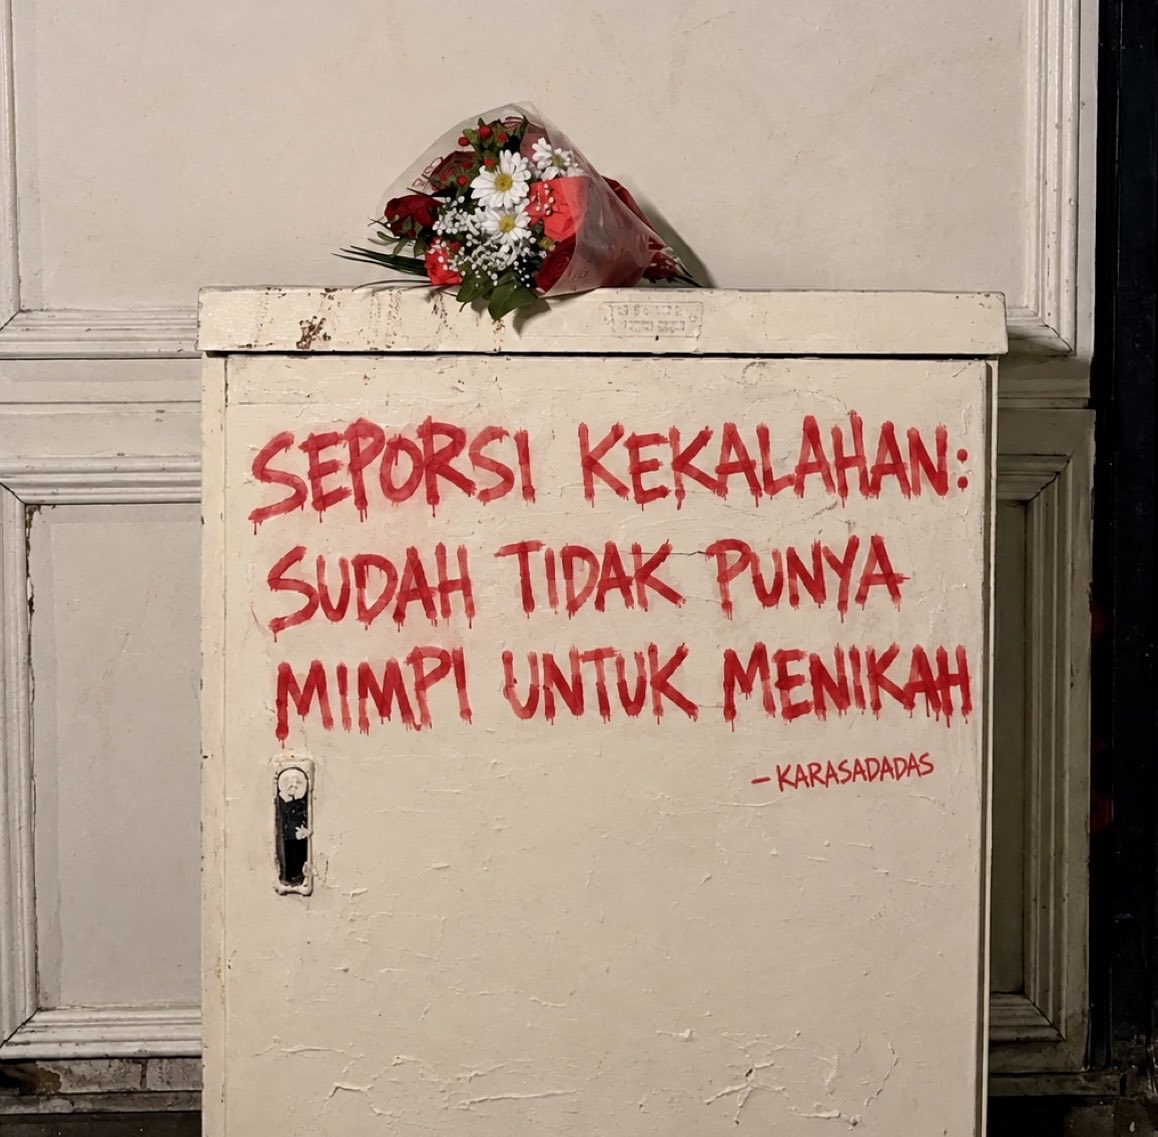 SEPORSI KEKALAHAN:
SUDAH TIDAK PUNYA
MIMPI UNTUK MENIKAH
—KARASADADAS